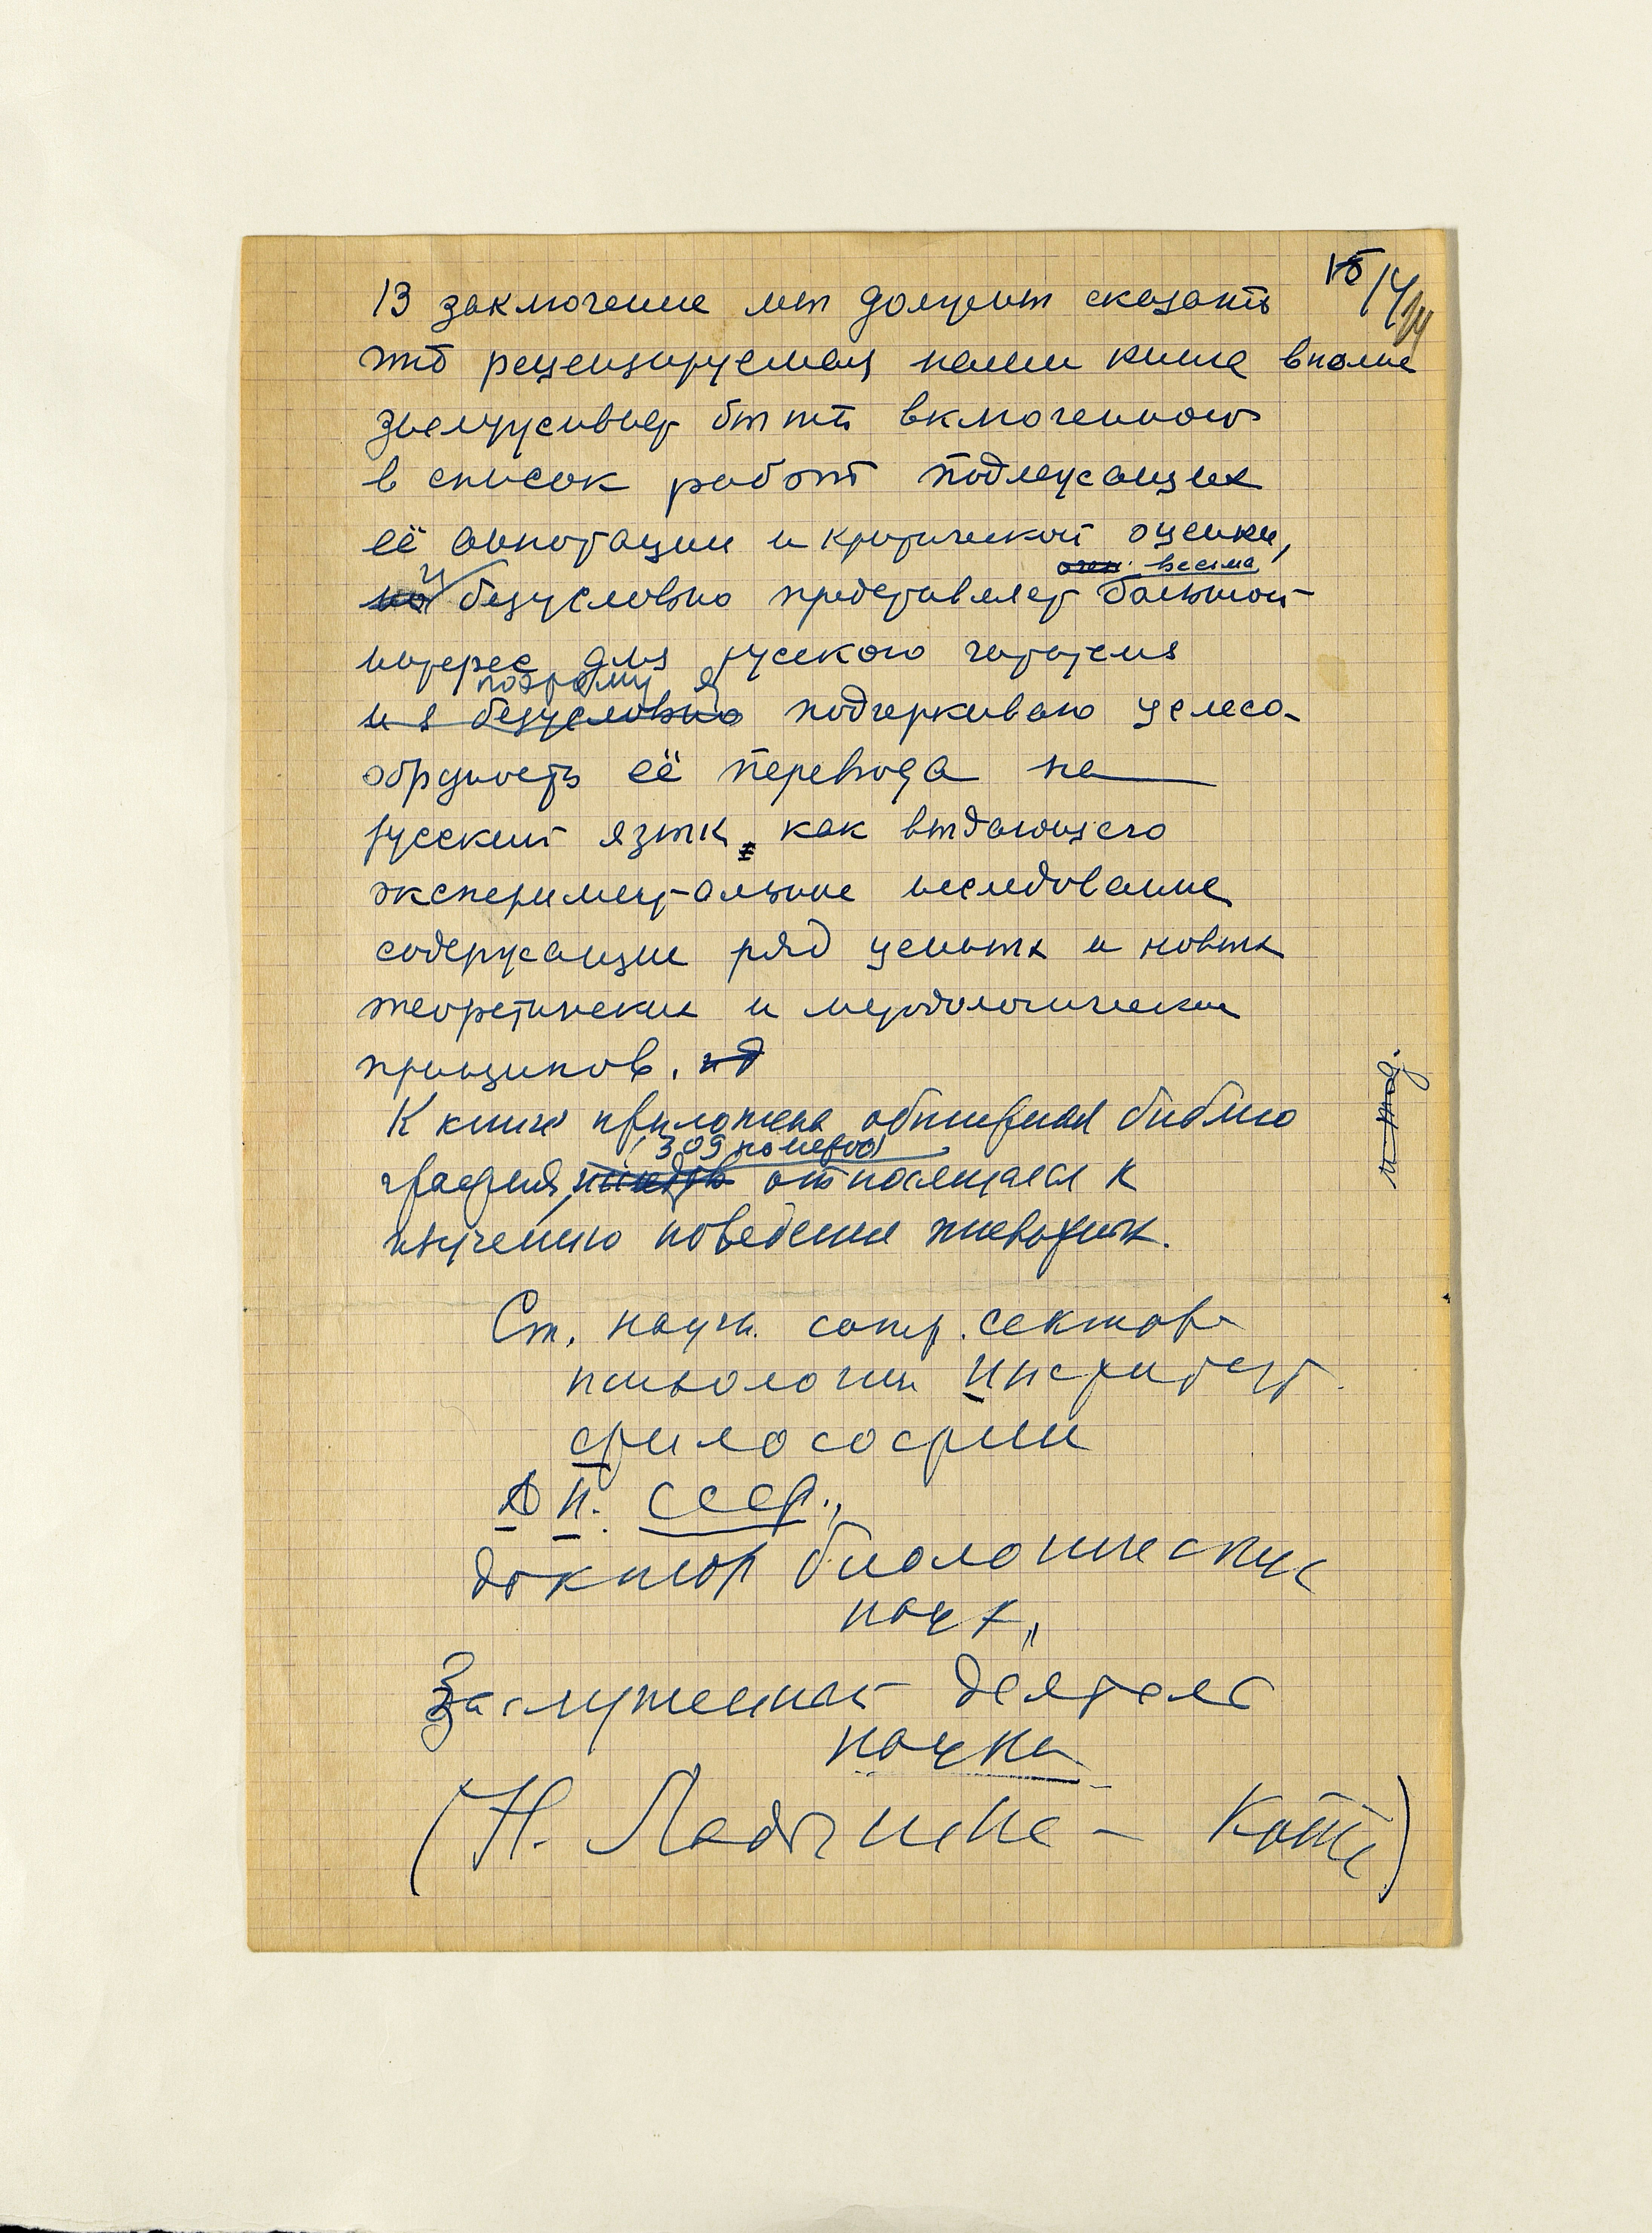 В заключение мы должны сказать
что рецензируемая нами книга вполне
заслуживает быть включенного
в список работ подлежащих
её аннотации и критической оценки,
весма
и безусловно представляет большой
интерес для русского читателя
поэтому я
и я безусловно подчеркиваю целесо-
обрзность её перевода на
русский язык, как выдающего
экспериментальное исследование
содержащие ряд ценных и новых
теоретических и методологически
принципов.
К книге приложена обширная библио
309 номеров
графия, относящаяся к
изучению поведения животных.
и тод.
Ст. научн. сотр. сектора
психологии Института
философии
А Н. СССР.,
доктор биологических
наук,,
Заслуженный деятель
науки
(Н. Ладыгина - Котс)